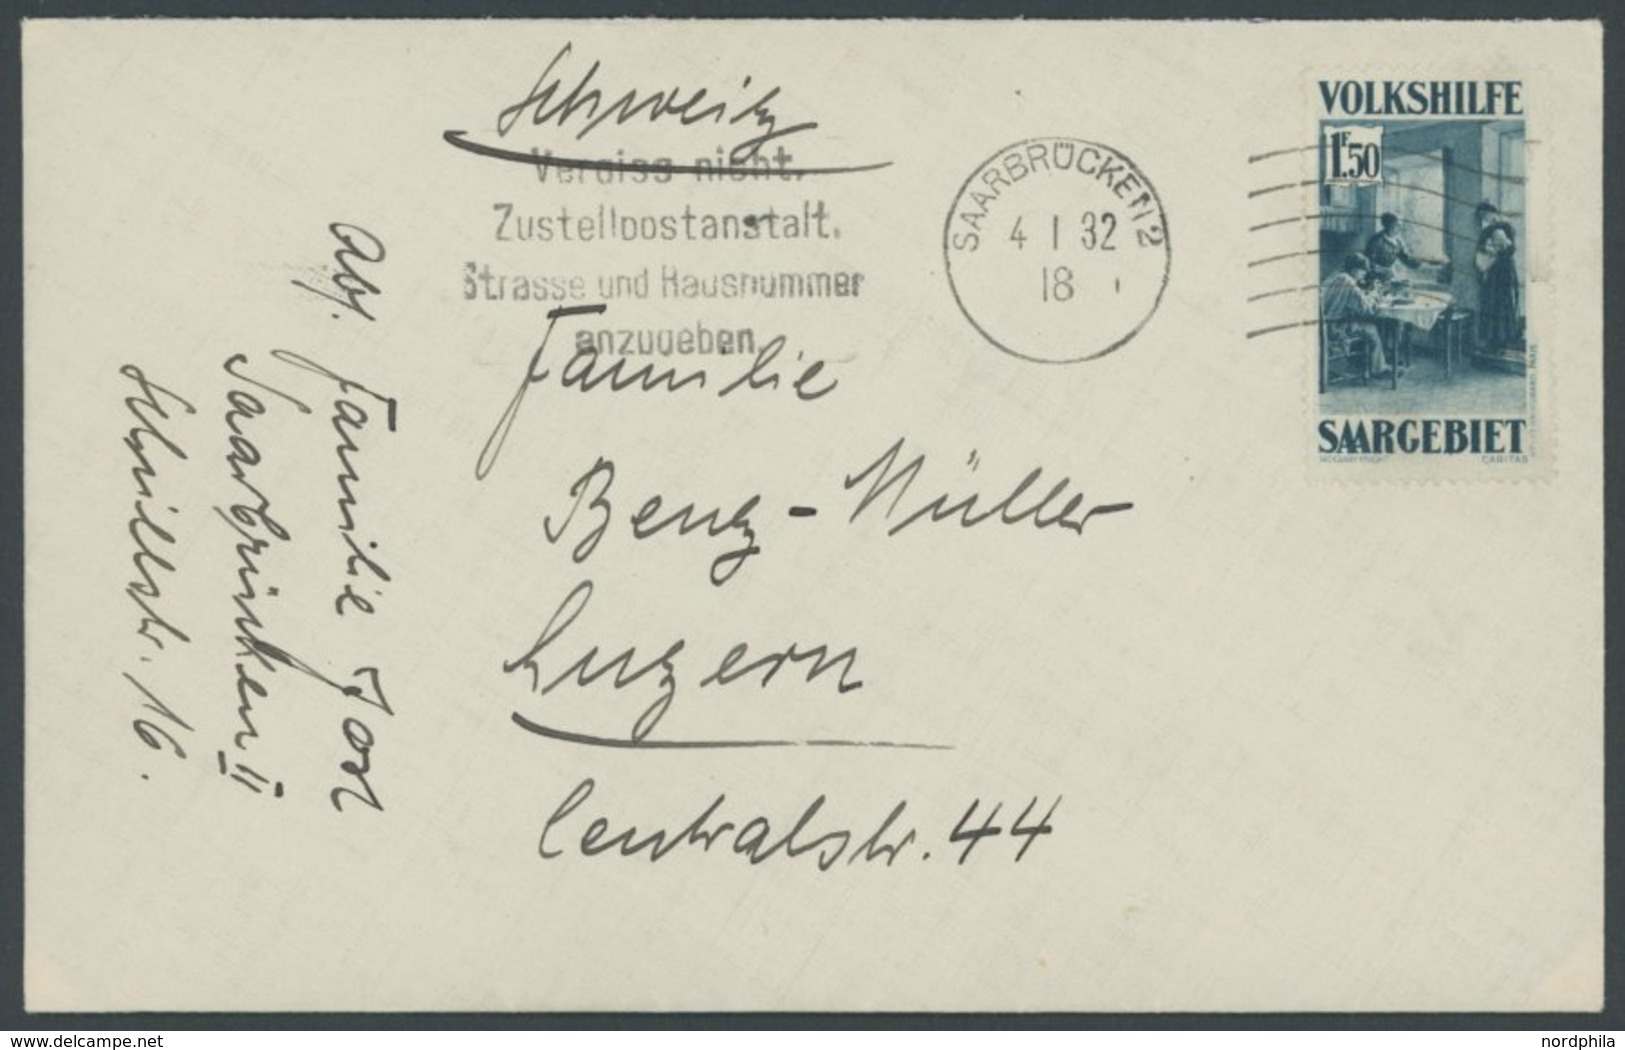 Schweiz
Vergiss nicht,
Zustellpostanstalt,
Strasse und Hausnummer
anzugeben.
SAARBRÜCKEN 2
4 1 32
18
VOLKSHILFE
1F.50
SAARGEBIET
CARITAS
Familie
Benz-Müller
Luzern
Centralstr. 44
Abs. Familie Jost
Saarbrücken II
str. 16.
www.delcampe.net
nordphila